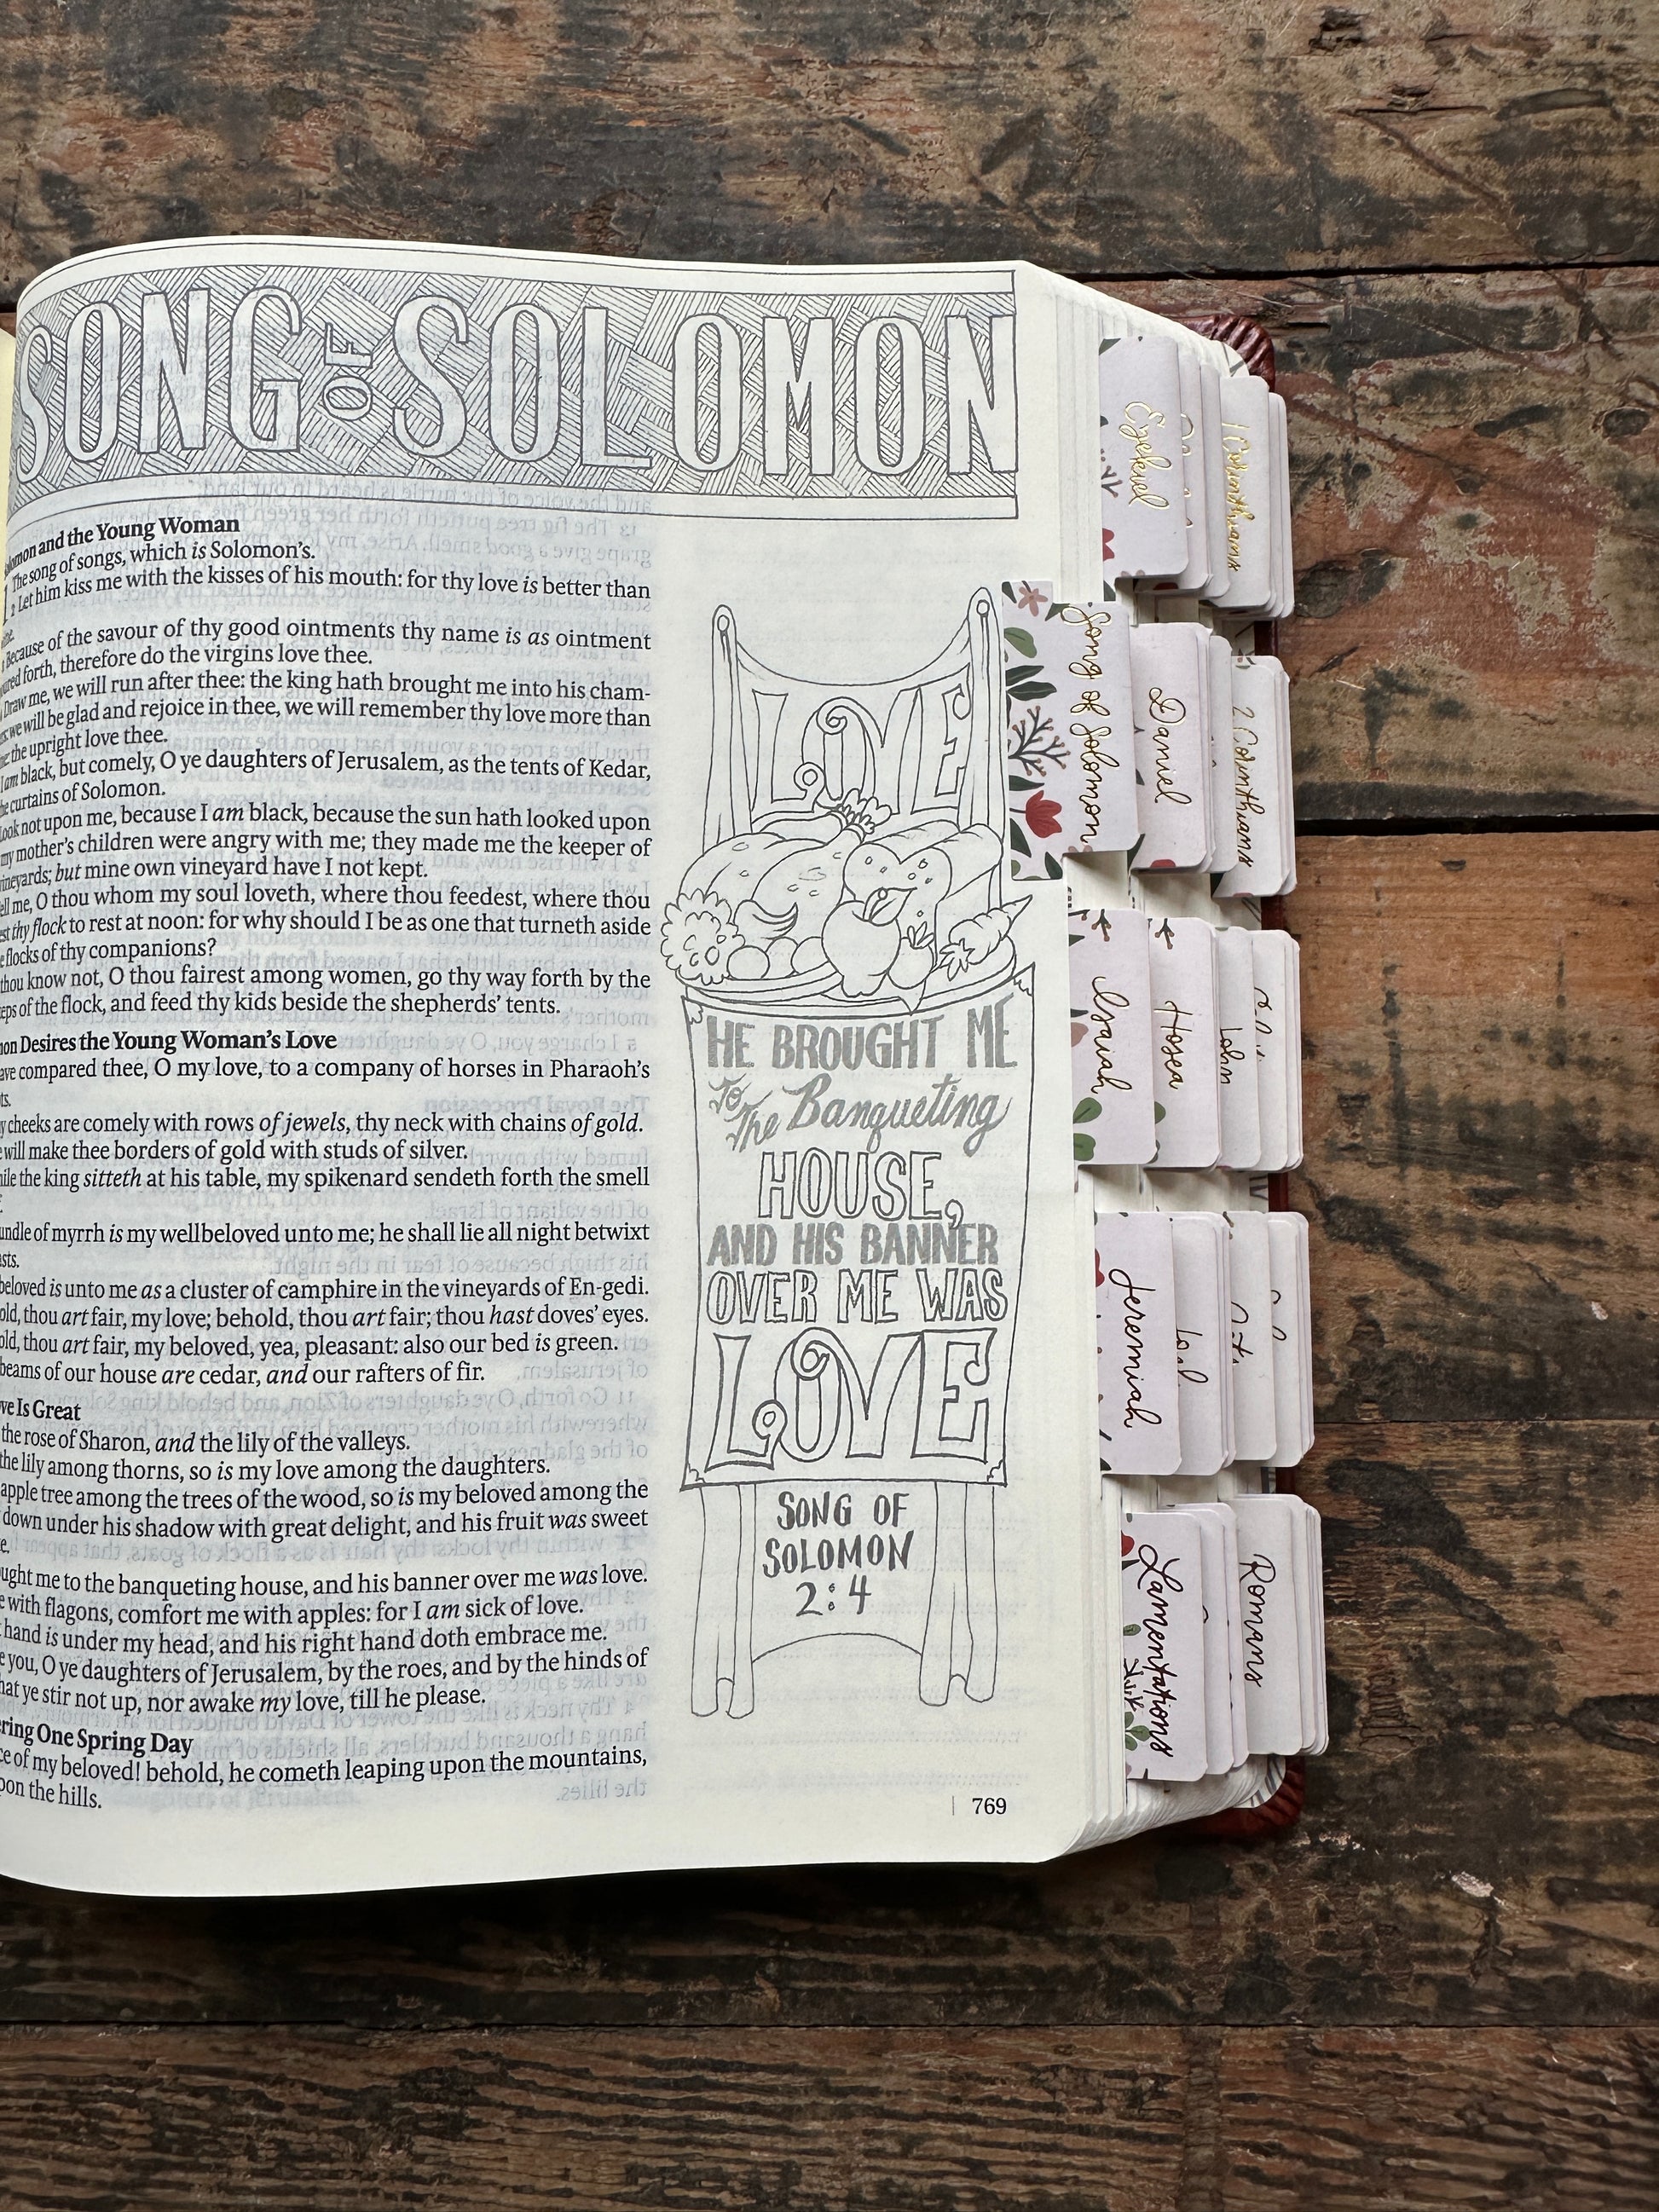 SONG OF SOLOMON
and the Young Woman
The song of songs, which is Solomon's.
2 Let him kiss me with the kisses of his mouth: for thy love is better than
Because of the savour of thy good ointments thy name is as ointment
forth, therefore do the virgins love thee.
Draw me, we will run after thee: the king hath brought me into his cham-
we will be glad and rejoice in thee, we will remember thy love more than
the upright love thee.
I am black, but comely, O ye daughters of Jerusalem, as the tents of Kedar,
curtains of Solomon.
Look not upon me, because I am black, because the sun hath looked upon
my mother's children were angry with me; they made me the keeper of
vineyards; but mine own vineyard have I not kept.
me, O thou whom my soul loveth, where thou feedest, where thou
thy flock to rest at noon: for why should I be as one that turneth aside
flocks of thy companions?
thou know not, O thou fairest among women, go thy way forth by the
of the flock, and feed thy kids beside the shepherds' tents.
Desires the Young Woman's Love
compared thee, O my love, to a company of horses in Pharaoh's
cheeks are comely with rows of jewels, thy neck with chains of gold.
will make thee borders of gold with studs of silver.
the king sitteth at his table, my spikenard sendeth forth the smell
of myrrh is my wellbeloved unto me; he shall lie all night betwixt
beloved is unto me as a cluster of camphire in the vineyards of En-gedi.
thou art fair, my love; behold, thou art fair; thou hast doves' eyes.
thou art fair, my beloved, yea, pleasant: also our bed is green.
beams of our house are cedar, and our rafters of fir.
Is Great
the rose of Sharon, and the lily of the valleys.
the lily among thorns, so is my love among the daughters.
apple tree among the trees of the wood, so is my beloved among the
down under his shadow with great delight, and his fruit was sweet
me to the banqueting house, and his banner over me was love.
with flagons, comfort me with apples: for I am sick of love.
hand is under my head, and his right hand doth embrace me.
you, O ye daughters of Jerusalem, by the roes, and by the hinds of
ye stir not up, nor awake my love, till he please.
One Spring Day
of my beloved! behold, he cometh leaping upon the mountains,
the hills.
LOVE
HE BROUGHT ME
To The Banqueting
HOUSE,
AND HIS BANNER
OVER ME WAS
LOVE
SONG OF
SOLOMON
2:4
769
Ezekiel
1 Corinthians
Song of Solomon
Daniel
2 Corinthians
Isaiah
Hosea
John
Jeremiah
Joel
Lamentations
Romans